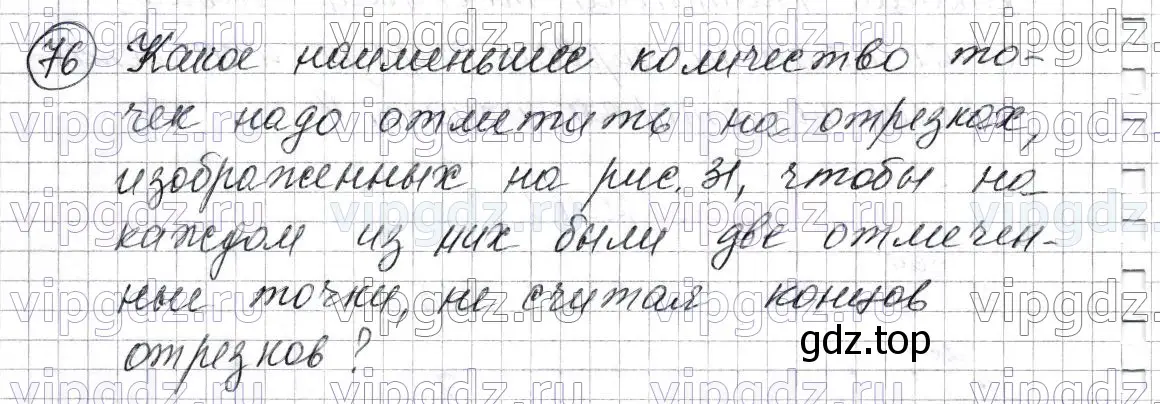 76 Какое наименьшее количество то-
чек надо отметить на отрезках,
изображенных на рис. 31, чтобы на
каждом из них были две отмечен-
ные точки, не считая концов
отрезков?
gdz.top
vipgdz.ru